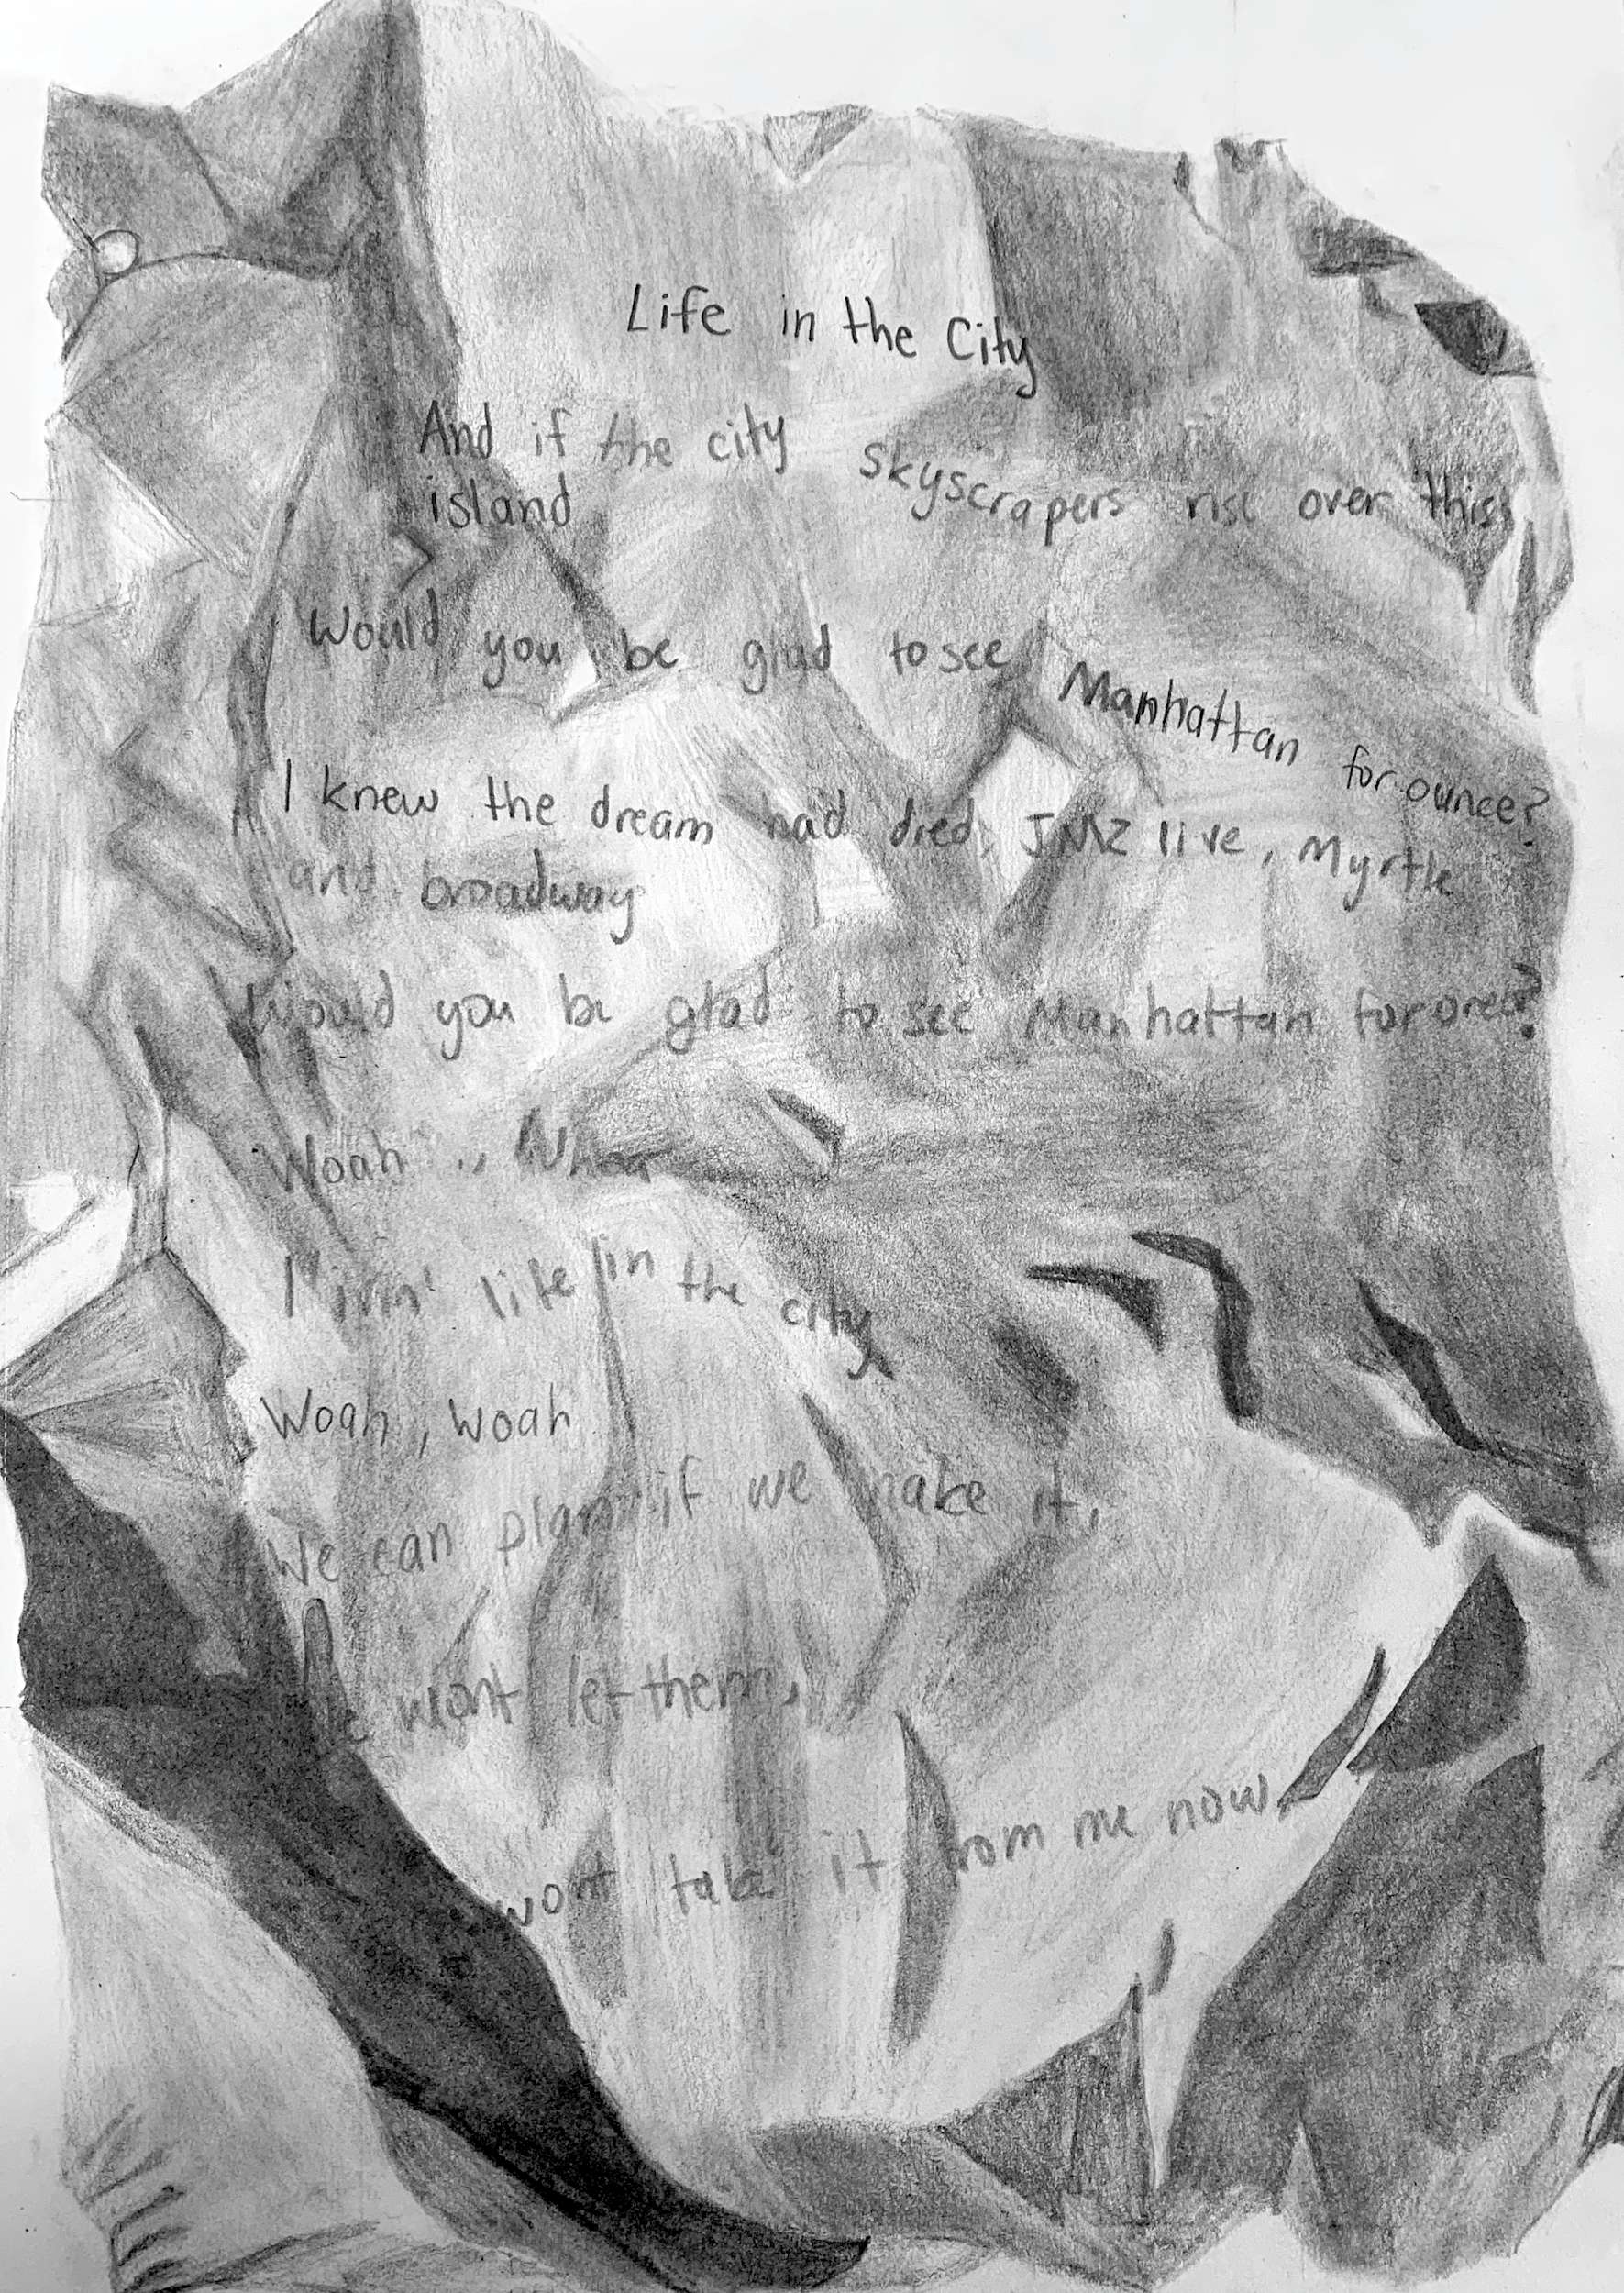 Life in the City
And if the city skyscrapers rise over this
island
Would you be glad to see Manhattan for ounce?
I knew the dream had died, JMZ live, Myrtle
and broadway
Would you be glad to see Manhattan for once?
Woah
life in the city
Woah, woah
We can plan if we make it,
wont let them,
wont take it from me now,